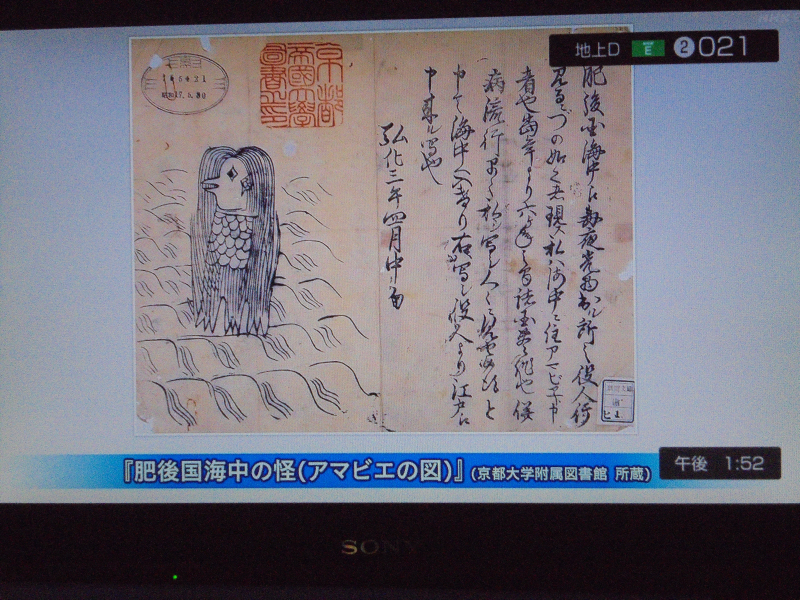 地上D E 2 021
肥後国海中江毎夜光物出ル所之役人行
見るニづの如之者現ス私ハ海中ニ住アマビヱト申
者也當年より六ヶ年之間諸国豊作也併
病流行早々私ヲ写シ人々ニ見セ候得と
申て海中へ入けり右写シ役人より江戸江
申来ル写也
弘化三年四月中旬
京都
帝國大學
圖書之印
『肥後国海中の怪(アマビエの図)』(京都大学附属図書館 所蔵)
午後 1:52
SONY